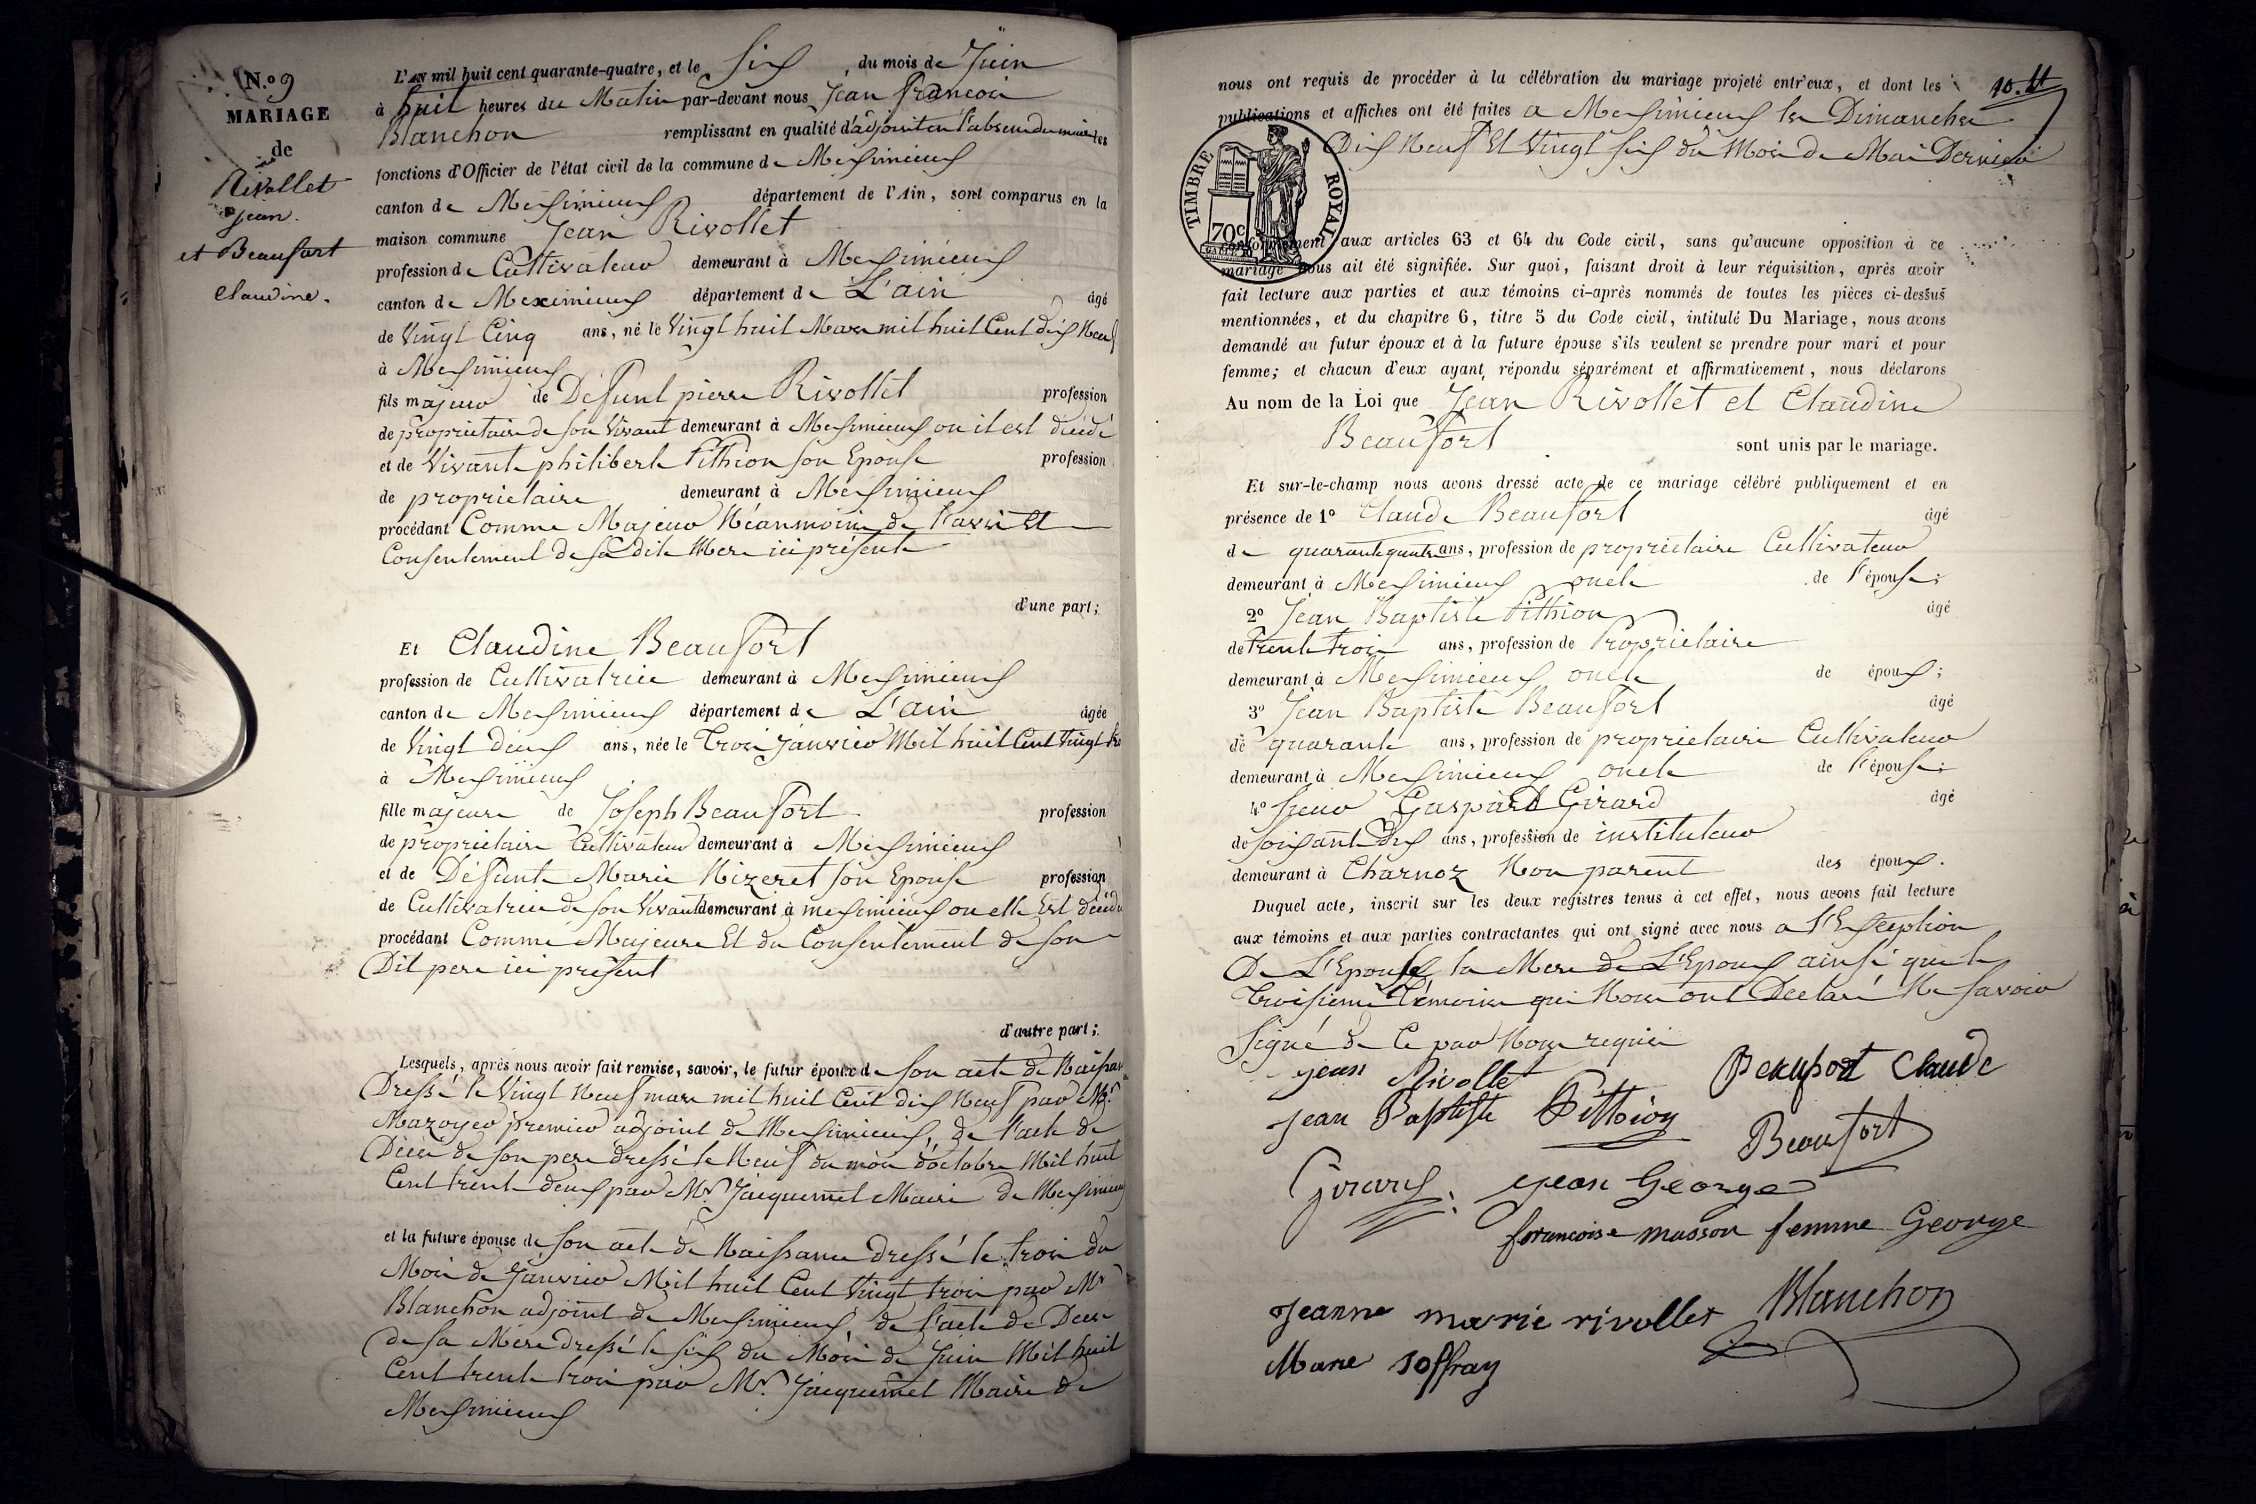 N.o 9
MARIAGE
de
Rivollet
Jean.
et Beaufort
Claudine.
L'AN mil huit cent quarante-quatre, et le Six, du mois de Juin
à huit heures du Matin par-devant nous Jean françois
Blanchon remplissant en qualité d'adjoint en l'absence du maire les
fonctions d'Officier de l'état civil de la commune de Meximieux
canton de Meximieux département de l'Ain, sont comparus en la
maison commune Jean Rivollet
profession de Cultivateur demeurant à Meximieux
canton de Meximieux département de L'ain âgé
de Vingt Cinq ans, né le Vingt huit Mars mil huit Cent dix Neuf
à Meximieux
fils majeur de Défunt pierre Rivollet profession
de propriétaire de son Vivant demeurant à Meximieux ou il est décédé
et de Vivante philiberte Pithion son Epouse profession
de propriétaire demeurant à Meximieux
procédant Comme Majeur Néanmoins de l'avis et
Consentement de sa dite Mere ici présente
d'une part;
Et Claudine Beaufort
profession de Cultivatrice demeurant à Meximieux
canton de Meximieux département de L'ain âgée
de Vingt deux ans, née le Trois Janvier Mil huit Cent Vingt tro
à Meximieux
fille majeure de Joseph Beaufort profession
de propriétaire Cultivateur demeurant à Meximieux
et de Défunte Marie Mizeret son Epouse profession
de Cultivatrice de son Vivant demeurant à meximieux ou elle Est décédé
procédant Comme Majeure Et du Consentement de son
Dit pere ici présent
d'autre part;
Lesquels, après nous avoir fait remise, savoir, le futur époux de son acte de Naissan
Dressé le Vingt Neuf mars mil huit Cent dix Neuf par Mr
Mazoyer premier adjoint de Meximieux, de l'acte de
Décés de son pere dressé le Neuf du mois d'octobre Mil huit
Cent trente deux par Mr. Jacquemet Maire de Meximieux
et la future épouse de son acte de Naissance dressé le trois du
Mois de Janvier Mil huit Cent Vingt trois par Mr
Blanchon adjoint de Meximieux, de l'acte de Décès
de sa Mere dressé le six du Mois de Juin Mil huit
Cent trente trois par Mr. Jacquemet Maire de
Meximieux
nous ont requis de procéder à la célébration du mariage projeté entr'eux, et dont les
publications et affiches ont été faites a Meximieux les Dimanches
Dix Neuf Et Vingt six du Mois de Mai Dernier
TIMBRE ROYAL
70c
conformément aux articles 63 et 64 du Code civil, sans qu'aucune opposition à ce
mariage nous ait été signifiée. Sur quoi, faisant droit à leur réquisition, après avoir
fait lecture aux parties et aux témoins ci-après nommés de toutes les pièces ci-dessus
mentionnées, et du chapitre 6, titre 5 du Code civil, intitulé Du Mariage, nous avons
demandé au futur époux et à la future épouse s'ils veulent se prendre pour mari et pour
femme; et chacun d'eux ayant répondu séparément et affirmativement, nous déclarons
Au nom de la Loi que Jean Rivollet et Claudine
Beaufort sont unis par le mariage.
Et sur-le-champ nous avons dressé acte de ce mariage célébré publiquement et en
présence de 1o Claude Beaufort âgé
de quarante quatre ans, profession de propriétaire Cultivateur
demeurant à Meximieux oncle de l'épouse;
2o Jean Baptiste Pithion âgé
de Trente trois ans, profession de Propriétaire
demeurant à Meximieux oncle de époux;
3o Jean Baptiste Beaufort âgé
de quarante ans, profession de propriétaire Cultivateur
demeurant à Meximieux oncle de l'épouse;
4o Sieur Gaspard Girard âgé
de soixante Dix ans, profession de instituteur
demeurant à Charnoz Non parent des époux.
Duquel acte, inscrit sur les deux registres tenus à cet effet, nous avons fait lecture
aux témoins et aux parties contractantes qui ont signé avec nous a l'Exception
De L'Epouse la Mere de L'Epoux ainsi que le
Troisieme Témoins qui Nous ont Declaré Ne Savoir
Signé de Ce par Nous requis
jean Rivollet
Beaufort Claude
jean Baptiste Pithion
Beaufort
Girard
jean George
francoise masson femme George
Jeanne marie rivollet
Blanchon
Marie joffray